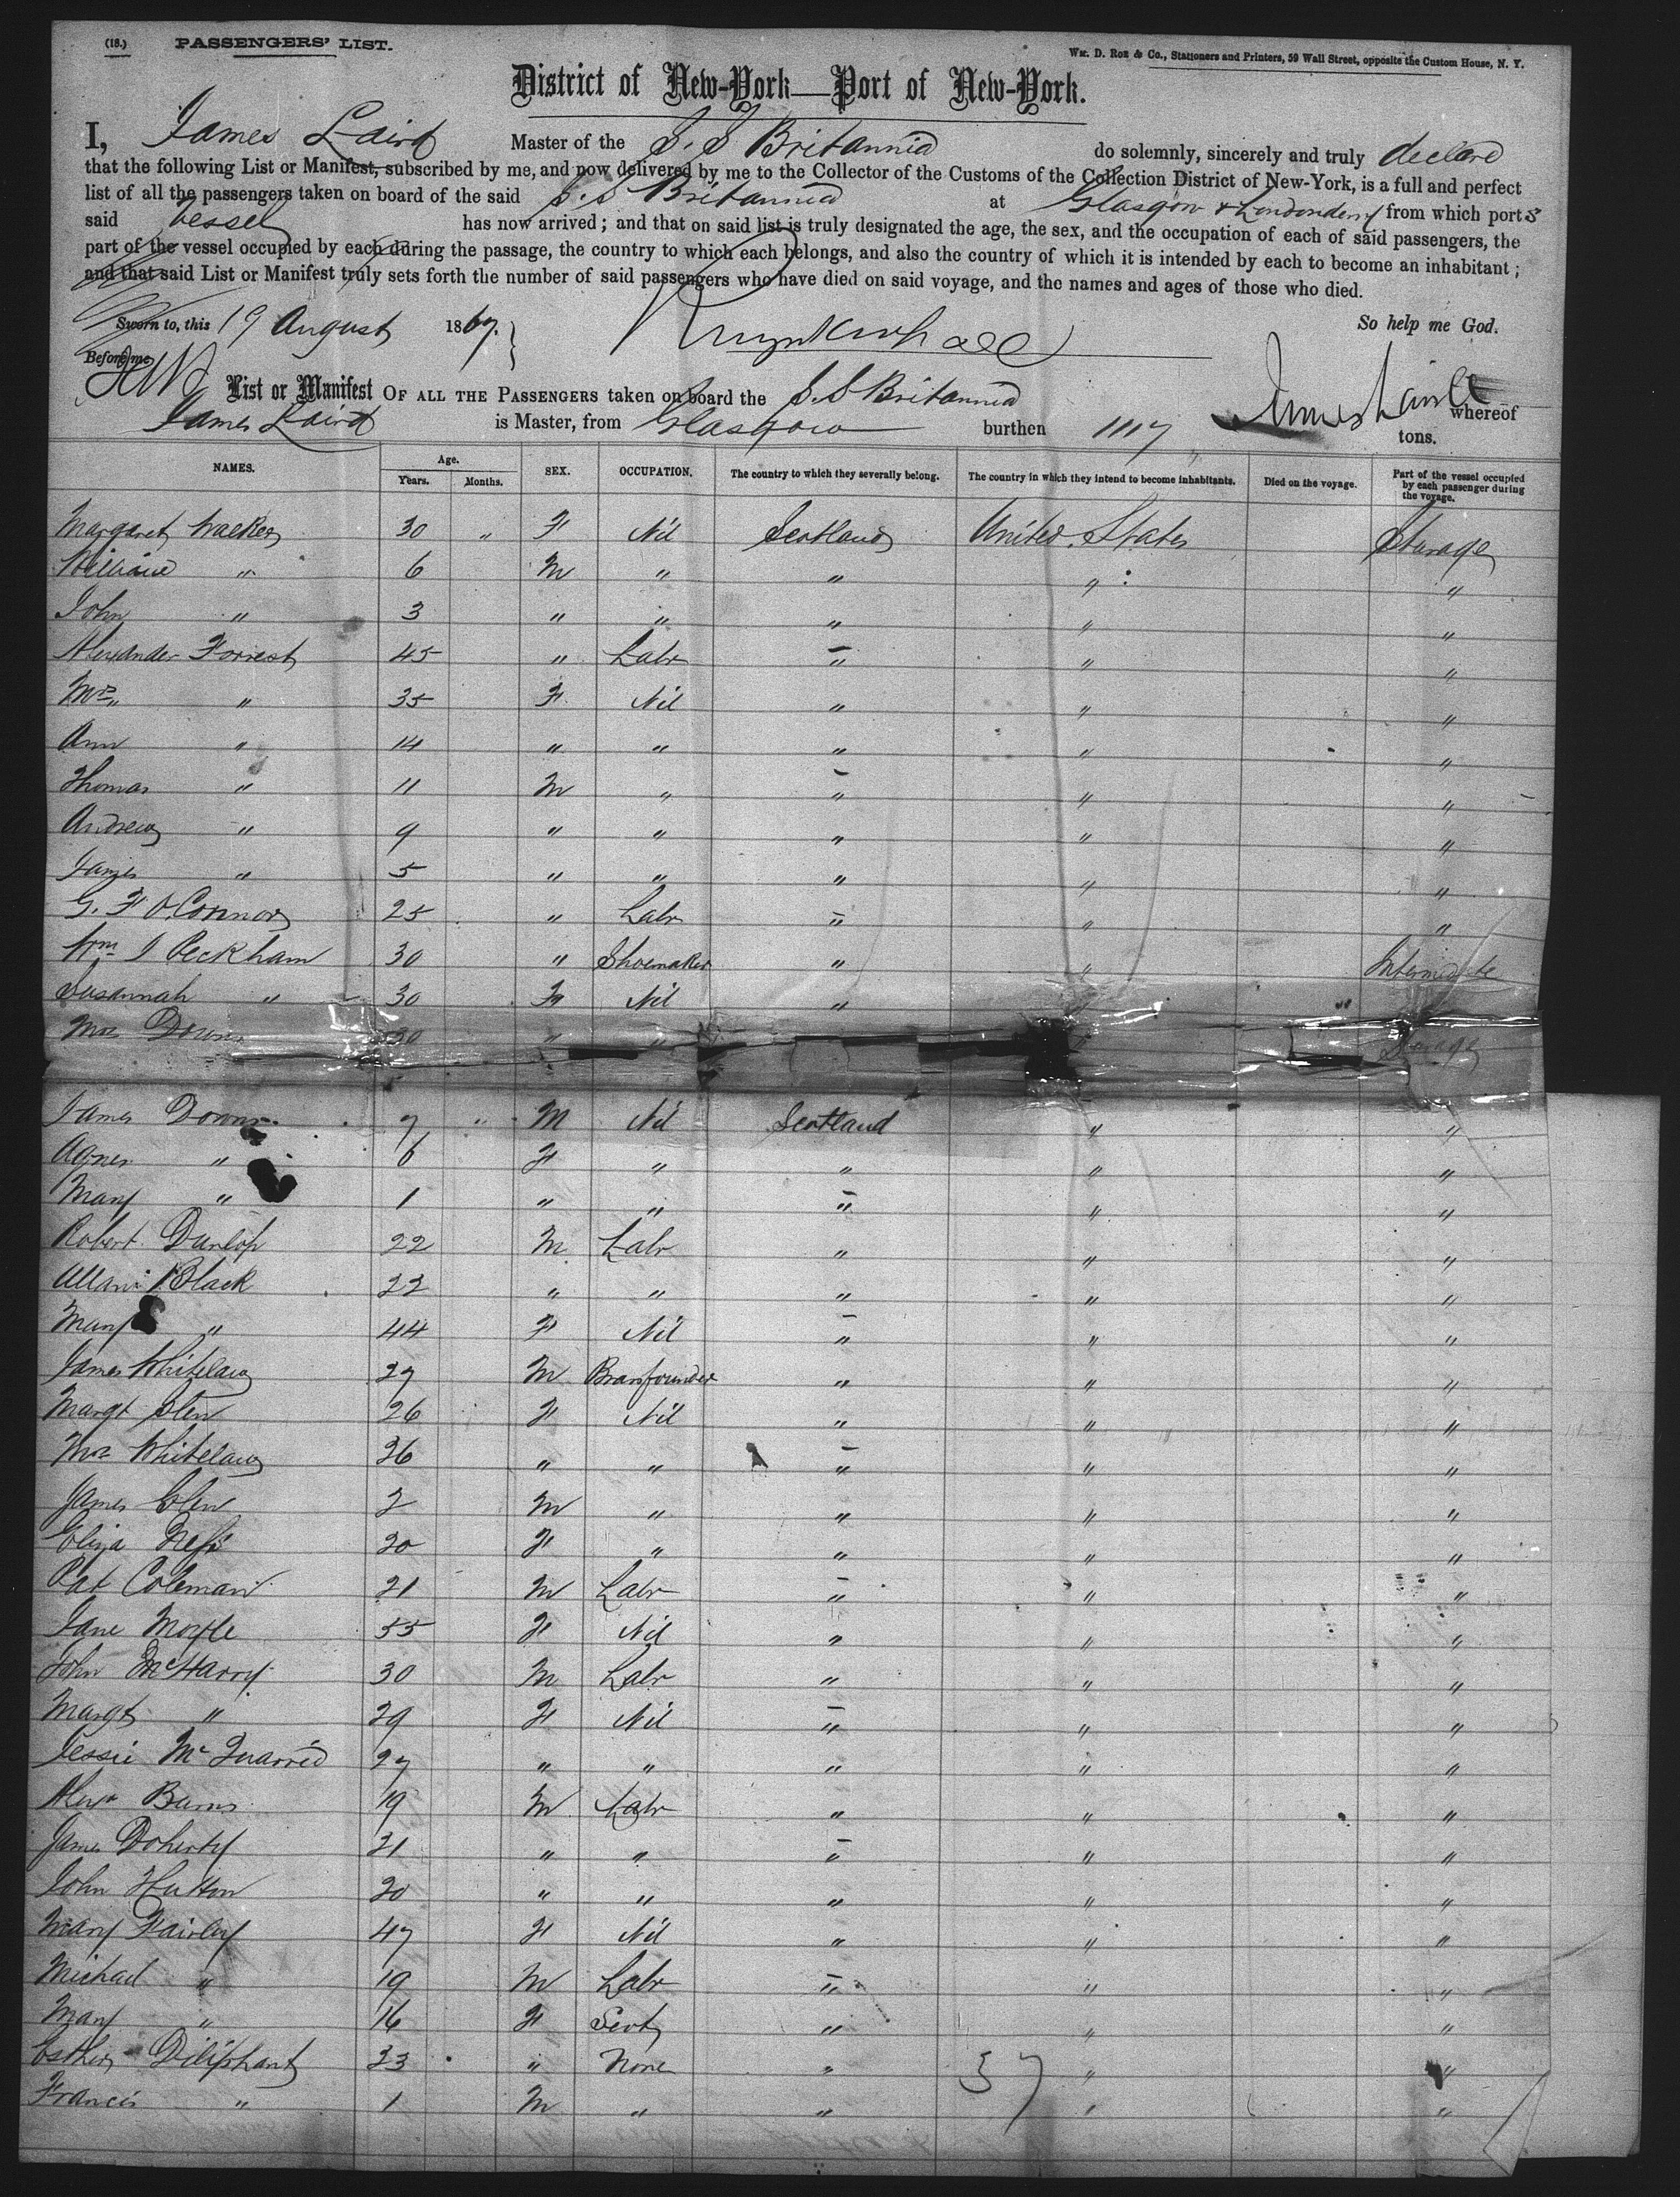 (18.) PASSENGERS' LIST.
Wm. D. Roe & Co., Stationers and Printers, 59 Wall Street, opposite the Custom House, N. Y.
District of New-York—Port of New-York.
I, James Laird Master of the S. S Britannia do solemnly, sincerely and truly declare
that the following List or Manifest, subscribed by me, and now delivered by me to the Collector of the Customs of the Collection District of New-York, is a full and perfect
list of all the passengers taken on board of the said S. S Britannia at Glasgow & Londonderry from which ports
said Vessel has now arrived; and that on said list is truly designated the age, the sex, and the occupation of each of said passengers, the
part of the vessel occupied by each during the passage, the country to which each belongs, and also the country of which it is intended by each to become an inhabitant;
and that said List or Manifest truly sets forth the number of said passengers who have died on said voyage, and the names and ages of those who died.
Sworn to, this 19 August 1867. So help me God.
Before me
James Laird
List or Manifest OF ALL THE PASSENGERS taken on board the S. S Britannia whereof
James Laird is Master, from Glasgow burthen 1117 tons.
NAMES. Age. Years. Months. SEX. OCCUPATION. The country to which they severally belong. The country in which they intend to become inhabitants. Died on the voyage. Part of the vessel occupied by each passenger during the voyage.
Margaret Walker 30 " F Nil Scotland United States Sturage
William " 6 M " " " "
John " 3 " " " " "
Alexander Forrest 45 " Labr " " "
Mrs " 35 F Nil " " "
Ann " 14 " " " " "
Thomas " 11 M " " " "
Andrew " 9 " " " " "
James " 5 " " " " "
G. F O.Connor 25 " Labr " " "
Wm J Peckham 30 " Shoemaker " " Intermediate
Susannah " 30 F Nil " "
Mrs Downs 30 " " Sturage
James Downs 7 " M Nil Scotland " "
Agnes " 6 F " " " "
Mary " 1 " " " " "
Robert Dunlop 22 M Labr " " "
Allan Black 22 " " " " "
Mary " 44 F Nil " " "
James Whitelaw 27 M Brassfounder " " "
Margt Glen 26 F Nil " " "
Mrs Whitelaw 26 " " " " "
James Glen 2 M " " " "
Eliza Ness 20 F " " " "
Pat Coleman 21 M Labr " " "
Jane Moyle 55 F Nil " " "
John McHarry 30 M Labr " " "
Margt " 29 F Nil " " "
Jessie McQuarrie 27 " " " " "
Alexr Burns 19 M Labr " " "
James Doherty 21 " " " " "
John Hutton 20 " " " " "
Mary Fairley 47 F Nil " " "
Michael " 19 M Labr " " "
Mary " 16 F Servt " " "
Esther Diliphant 23 " None " " "
Francis " 1 M " " " "
37